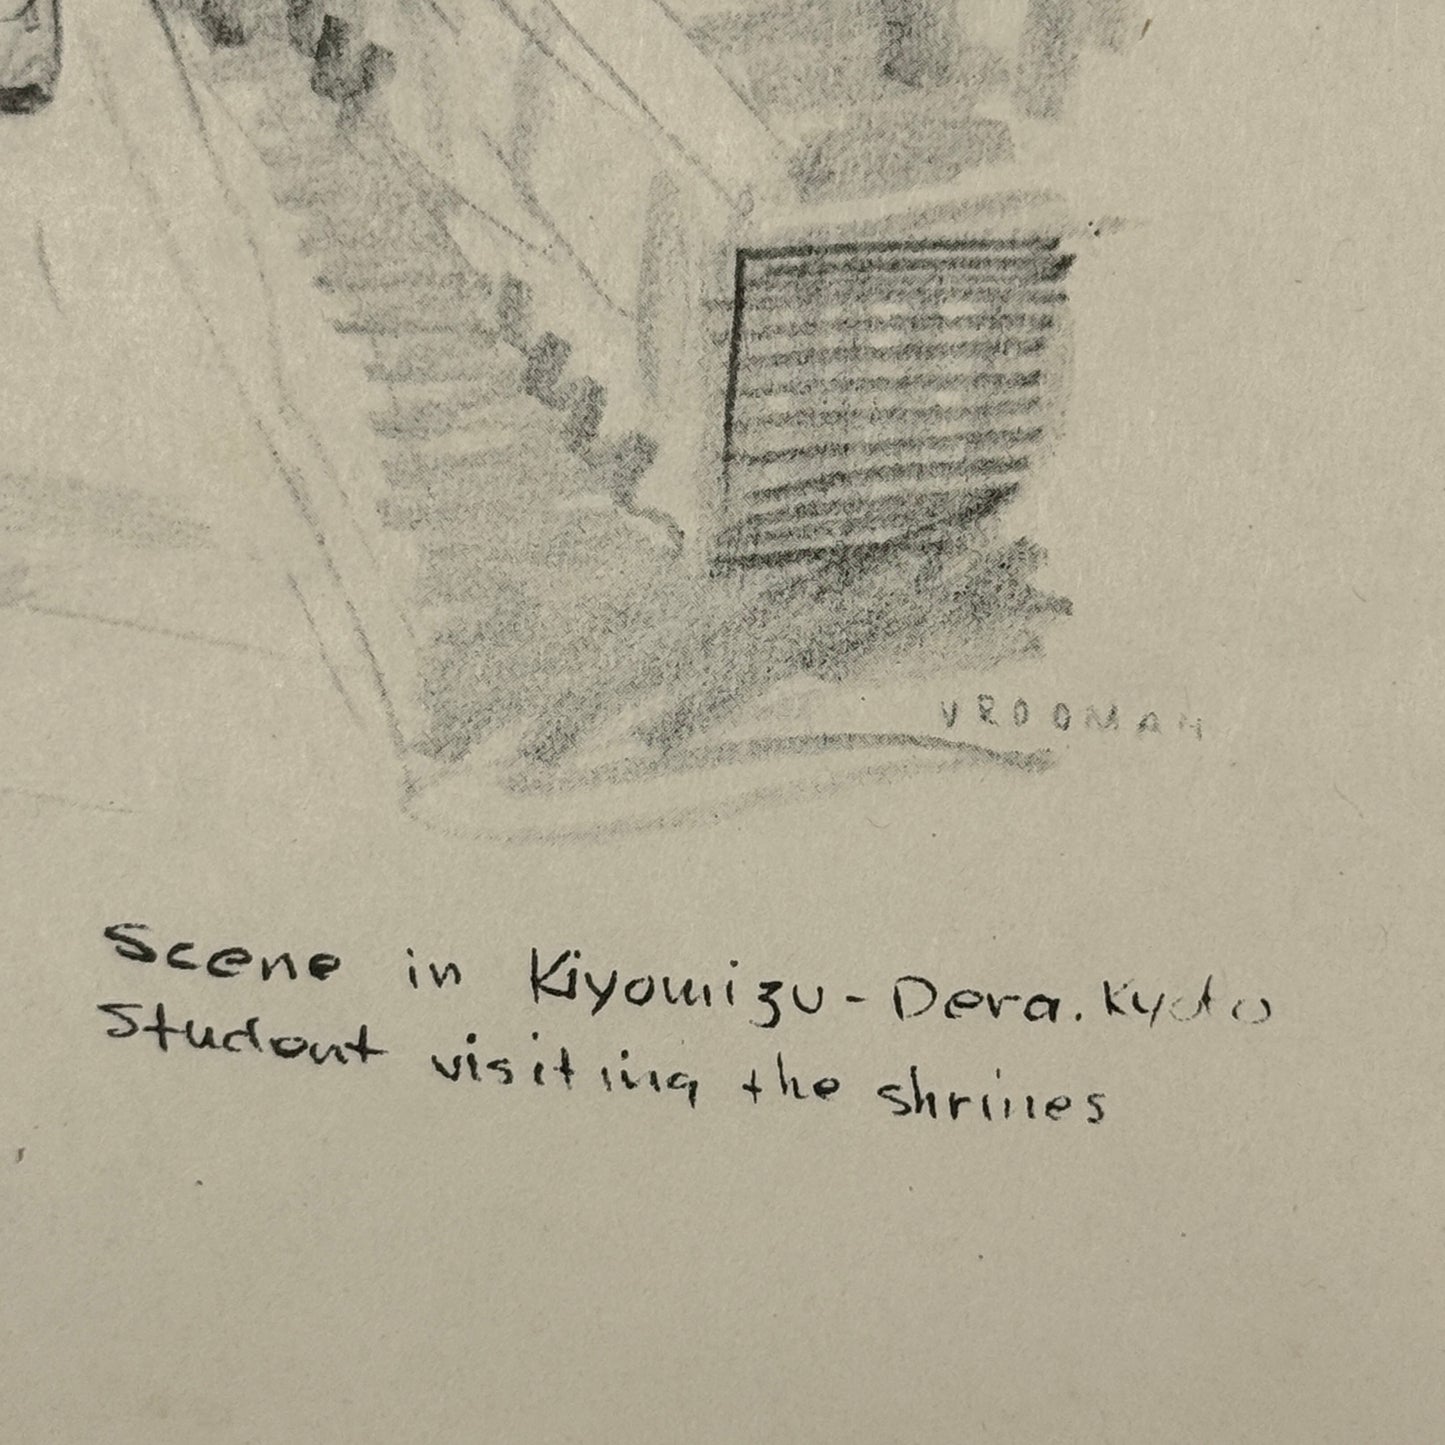 VROOMAN
Scene in Kiyomizu-Dera. Kyoto
Student visiting the shrines